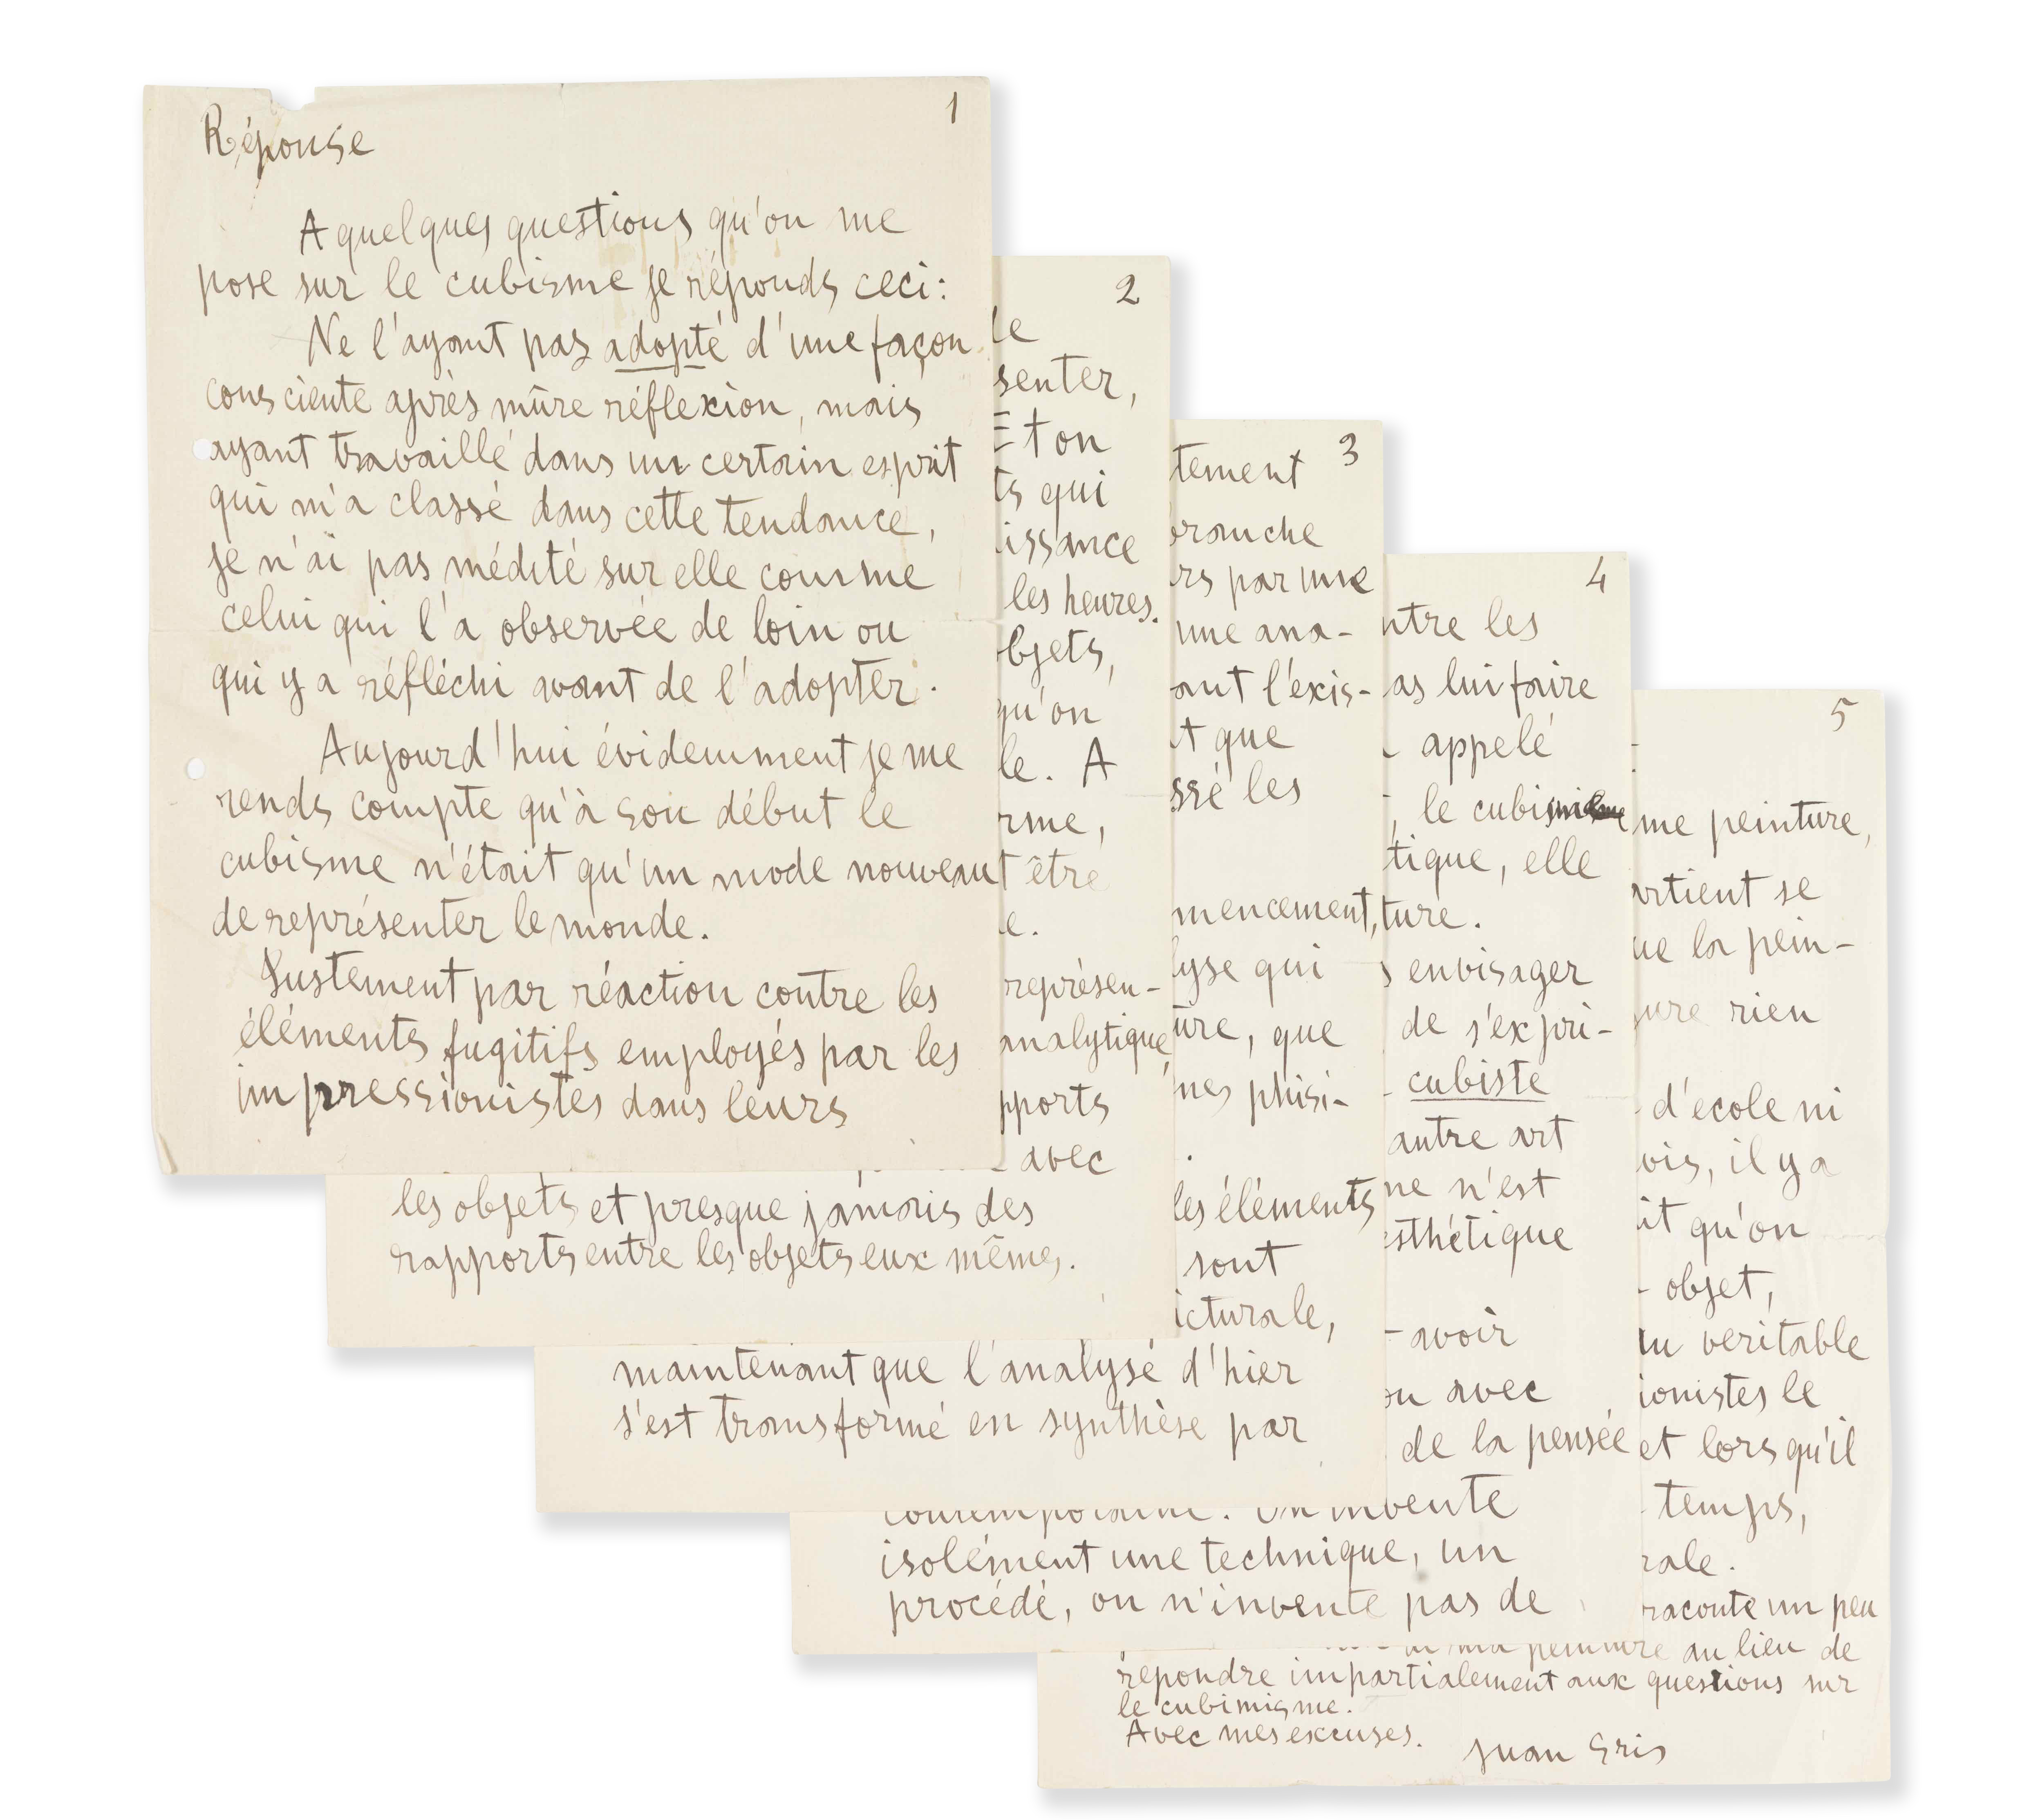 1
Réponse
A quelques questions qu'on me
pose sur le cubisme je réponds ceci:
Ne l'ayant pas adopté d'une façon
consciente après mûre réflexion, mais
ayant travaillé dans un certain esprit
qui m'a classé dans cette tendance,
je n'ai pas médité sur elle comme
celui qui l'a observée de loin ou
qui y a réfléchi avant de l'adopter.
Aujourd'hui évidemment je me
rends compte qu'à son début le
cubisme n'était qu'un mode nouveau
de représenter le monde.
Justement par réaction contre les
éléments fugitifs employés par les
impressionistes dans leurs
2
le
senter,
Et on
ts qui
issance
les heures.
objets,
qu'on
le. A
rme,
t être
e.
représen-
analytique,
pports
avec
les objets et presque jamais des
rapports entre les objets eux mêmes.
3
tement
branche
rs par une
une ana-
ant l'éxis-
t que
ssé les
mencement,
lyse qui
ture, que
nes phisi-
les éléments
sont
icturale,
maintenant que l'analyse d'hier
s'est transformé en synthèse par
4
ntre les
as lui faire
appelé
, le cubisme
tique, elle
ture.
s envisager
de s'expri-
cubiste
autre art
me n'est
esthétique
avoir
on avec
de la pensée
contemporaine. On invente
isolément une technique, un
procédé, on n'invente pas de
5
me peinture,
artient se
ue la pein-
gure rien
d'ecole ni
ois, il y a
it qu'on
objet,
au veritable
ionistes le
et lorsqu'il
temps,
rale.
raconte un peu
ma peinture au lieu de
repondre impartialement aux questions sur
le cubimisme.
Avec mes excuses.
Juan Gris